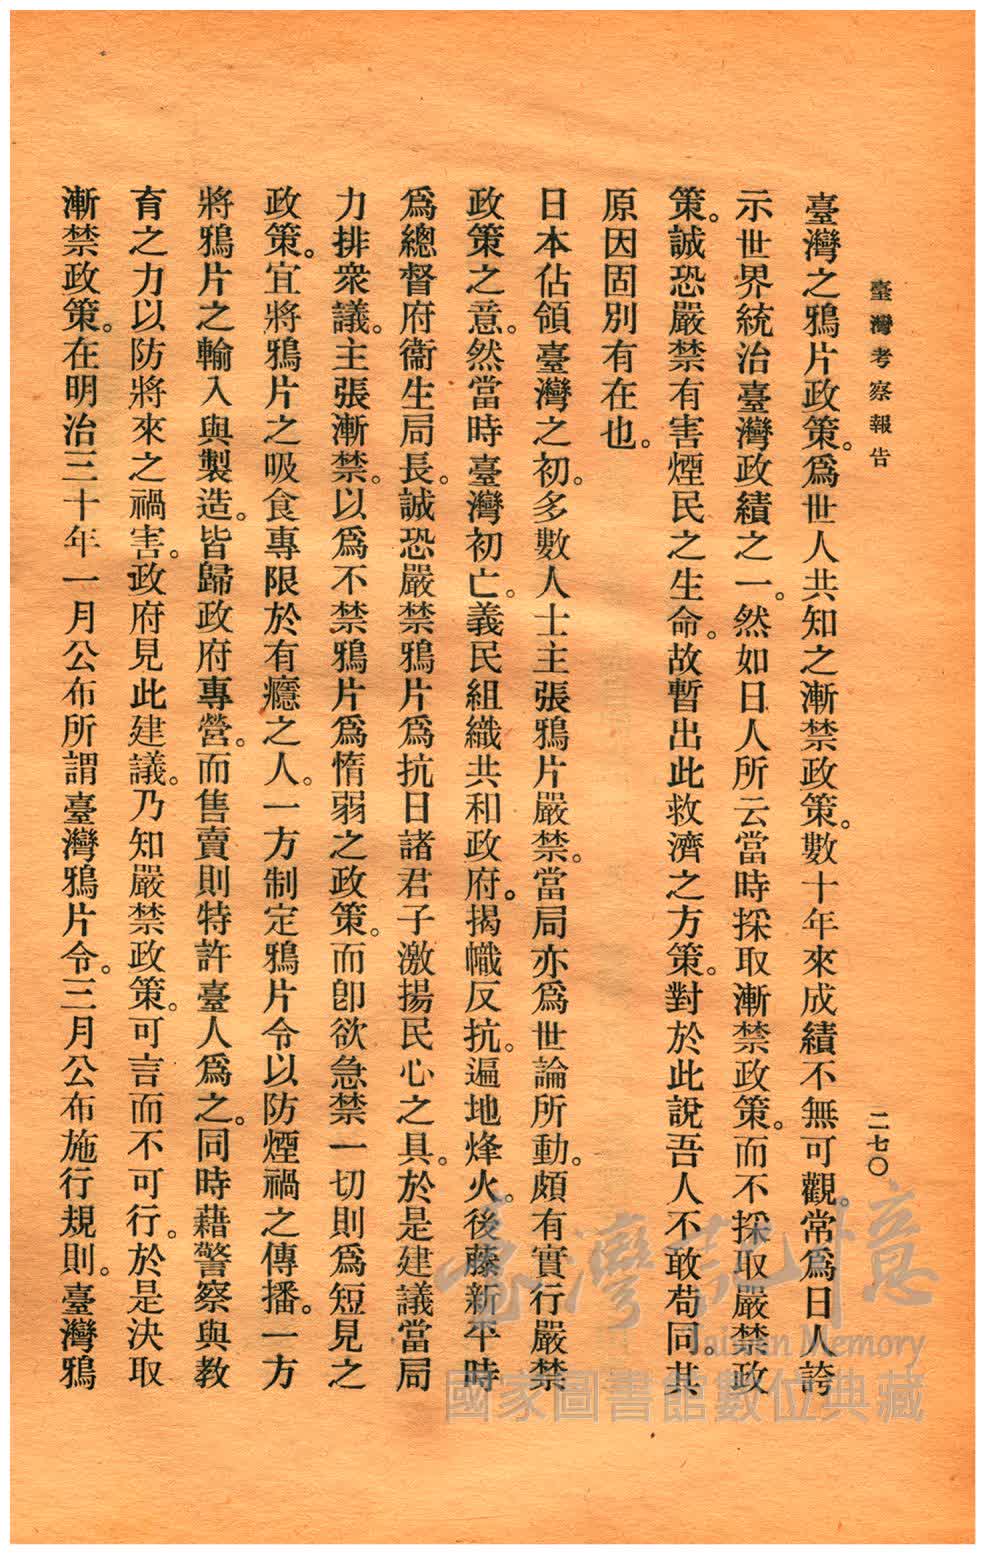 臺灣考察報告
二七〇
臺灣之鴉片政策。爲世人共知之漸禁政策。數十年來成績不無可觀。常爲日人誇
示世界統治臺灣政績之一。然如日人所云當時採取漸禁政策。而不採取嚴禁政
策。誠恐嚴禁有害煙民之生命。故暫出此救濟之方策。對於此說吾人不敢苟同。其
原因固別有在也。
日本佔領臺灣之初。多數人士主張鴉片嚴禁。當局亦爲世論所動。頗有實行嚴禁
政策之意。然當時臺灣初亡。義民組織共和政府。揭幟反抗。遍地烽火。後藤新平時
爲總督府衞生局長。誠恐嚴禁鴉片爲抗日諸君子激揚民心之具。於是建議當局
力排衆議。主張漸禁。以爲不禁鴉片爲惰弱之政策。而卽欲急禁一切則爲短見之
政策。宜將鴉片之吸食專限於有癮之人。一方制定鴉片令以防煙禍之傳播。一方
將鴉片之輸入與製造。皆歸政府專營。而售賣則特許臺人爲之。同時藉警察與教
育之力以防將來之禍害。政府見此建議。乃知嚴禁政策。可言而不可行。於是決取
漸禁政策。在明治三十年一月公布所謂臺灣鴉片令。三月公布施行規則。臺灣鴉
臺灣記憶
Taiwan Memory
國家圖書館數位典藏